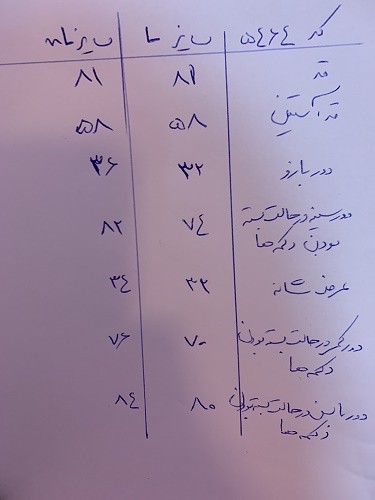 کد ۵۴۶۴ سایز ۱ سایز ۲
قد ۸۱ ۸۱
قد آستین ۵۸ ۵۸
دور بازو ۳۲ ۳۶
دور سینه در حالت بسته ۷۴ ۸۲
بودن دکمه ها
عرض شانه ۳۲ ۳۴
دور کمر در حالت بسته بودن ۷۰ ۷۶
دکمه ها
دور باسن در حالت بسته بودن ۸۰ ۸۴
دکمه ها